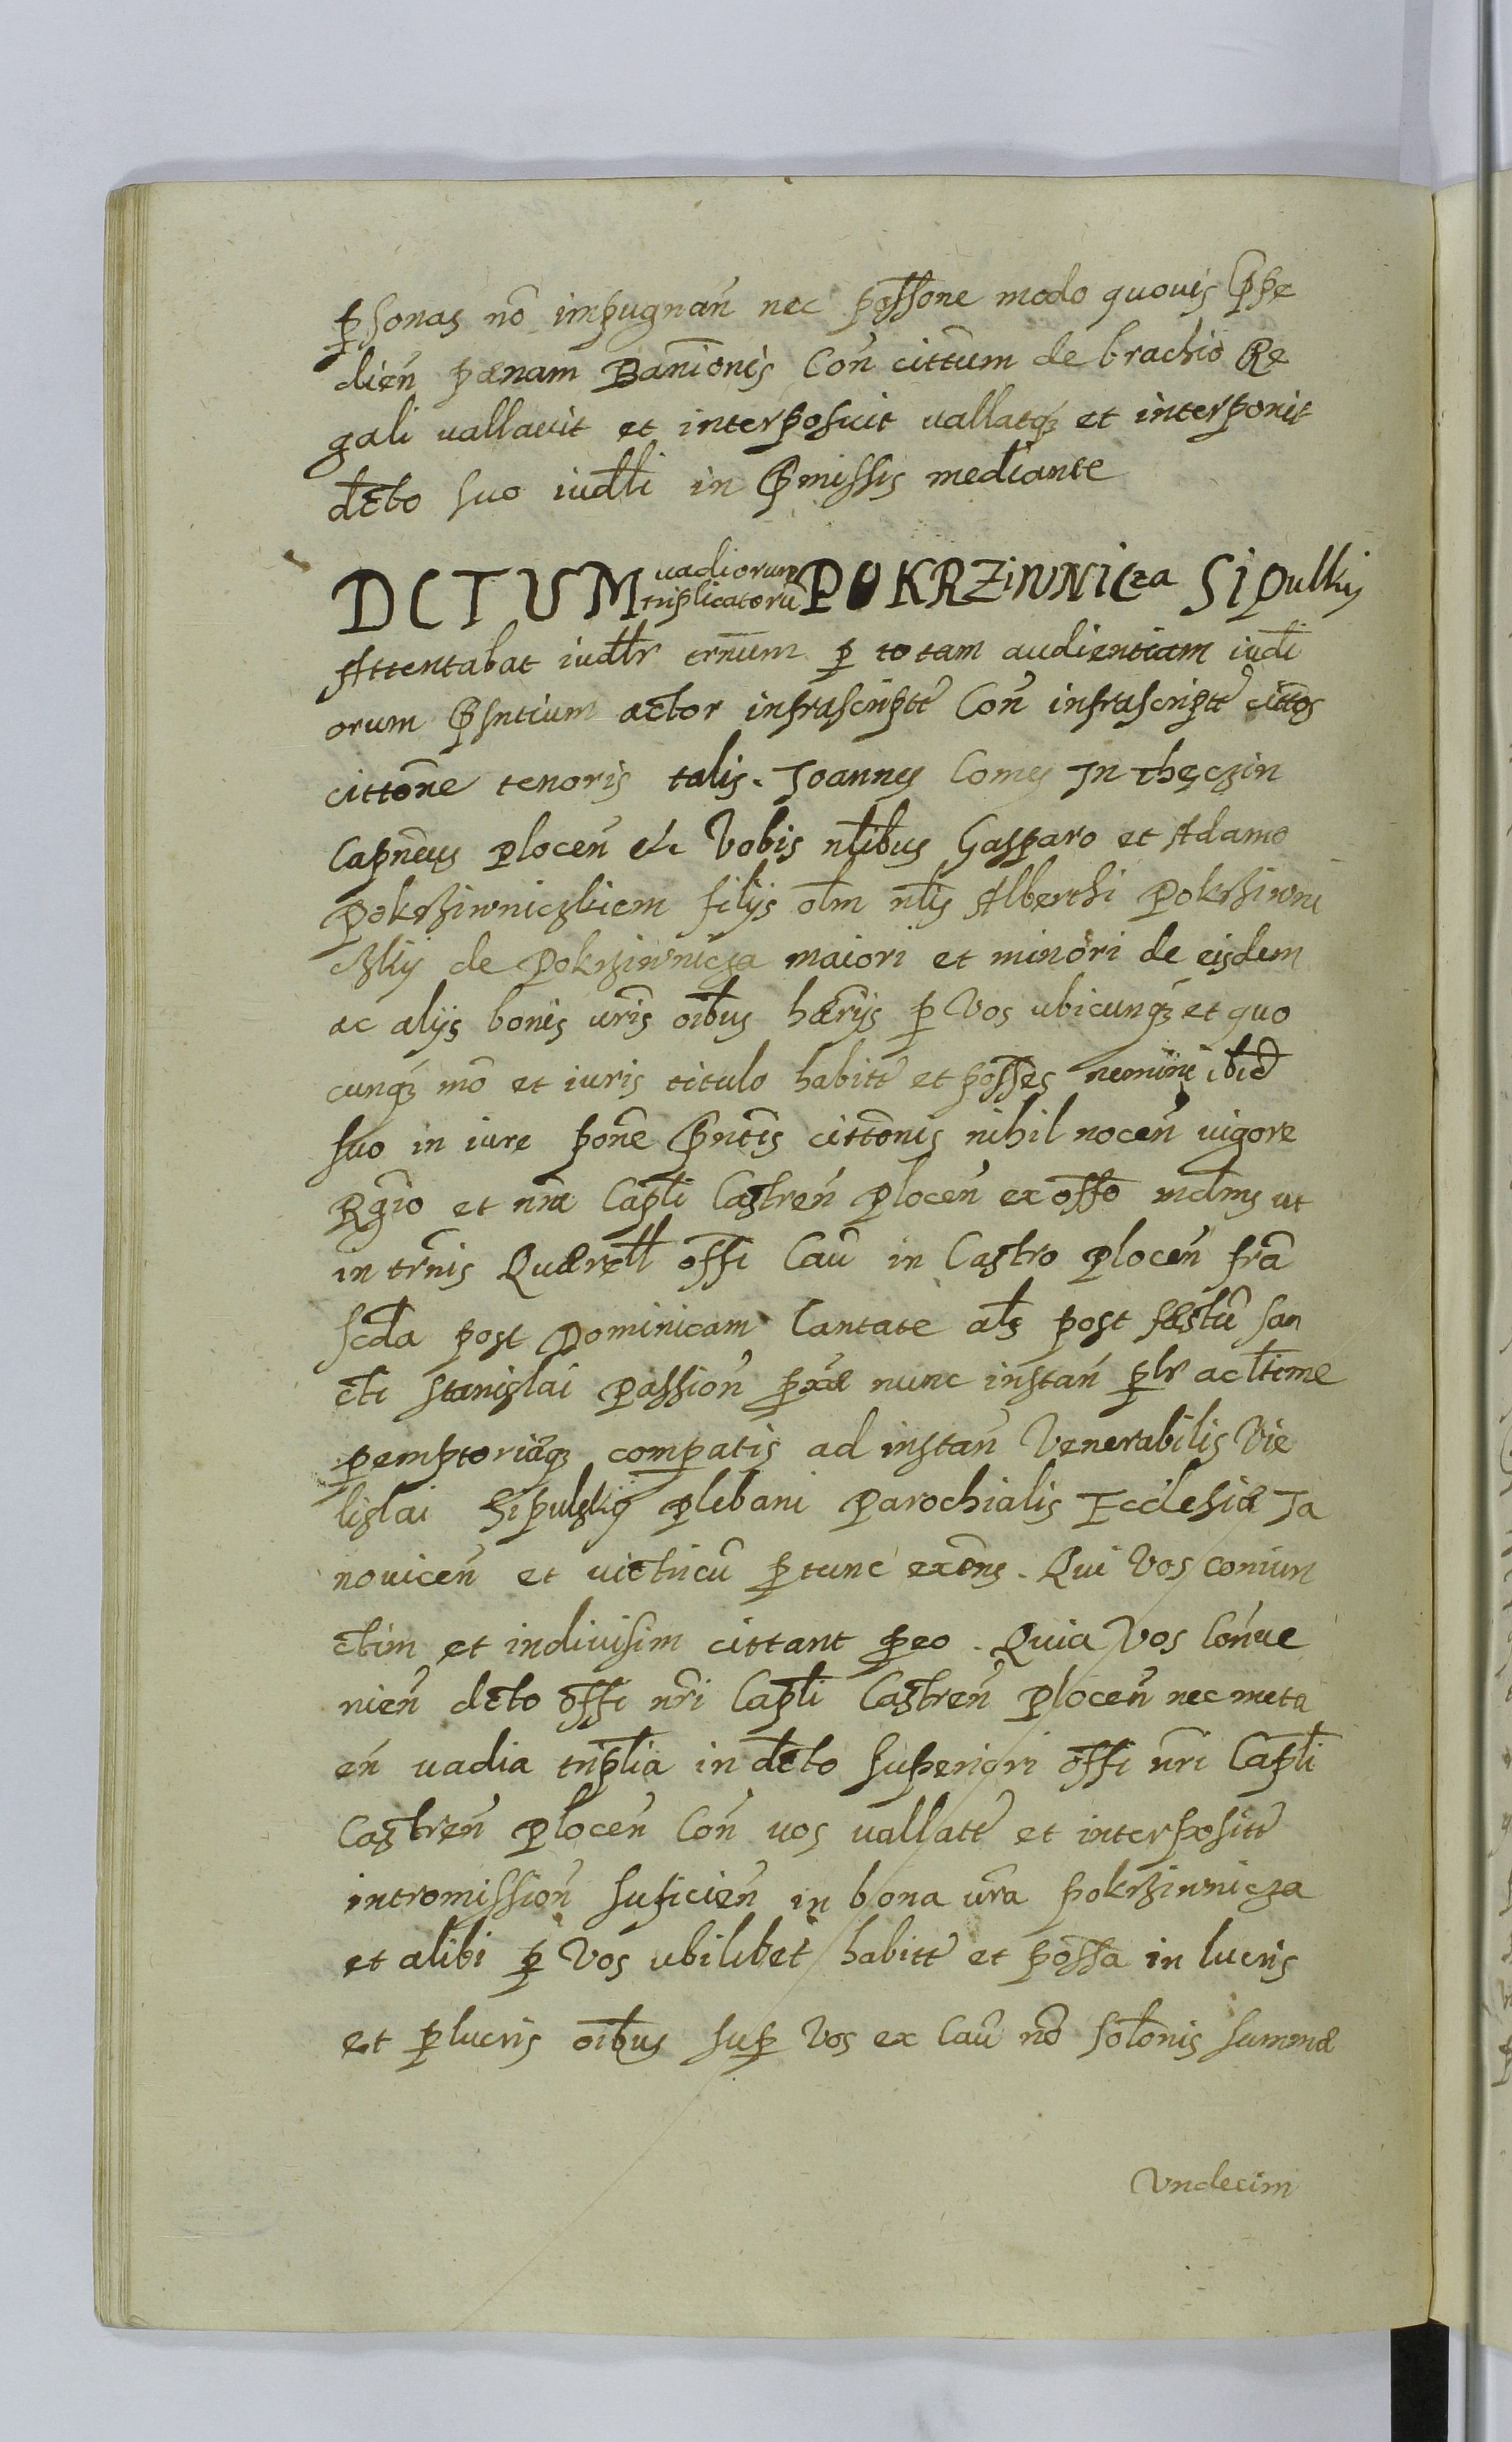 ꝑsonas nō impugnań nec posſsone modo quovis Prӕpe
dień pænam Banionis Coń cittum de brachio Re
gali vallavit et interposuit vallatqꝫ et interponit
dcto suo iudli in Prӕmissis mediante
DCTUM vadiorum triplicatorū POKRZiWNICza SiPulkij
Attentabat iudlr trnum ꝑ totam audientiam iudi
orum Prӕsntium actor infrascriptt Coń infrascriptt cittos
cittone tenoris talis. Joannes Comes In Thęczin
Capneus Ploceń etc Vobis nlibus Gasparo et Adamo
Pokrziwniczkiem filijs olm nlis Alberthi Pokrziwni
czkij de Pokrziwnicza maiori et minori de eisdem
ac alijs bonis vris oibus hærijs ꝑ Vos ubicunqꝫ et quo
cunqꝫ mō et iuris titulo habitt et posses nemini ibid
suo in iure pone Prӕntis cittonis nihil noceń vigore
Rgio et nra Capli Castreń Ploceń ex offo mdmus ut
in trnis Quærell offi Caū in Castro Ploceń fra
scda post Dominicam Cantate als post festū san
cti Stanislai Passioń pxæ nunc instań ꝑlr ac ltime
pemptoriæqꝫ compatis ad instań Venerabilis Vie
lislai Sipulskij Plebani Parochialis Ecclesiæ Ja
noviceń et victricū ꝑtunc extns. Qui Vos coniun
ctim et indivisim cittant ꝑeo. Quia Vos Conve
nień dcto offi nri Capli Castreń Ploceń nec meta
eń vadia triplia in dcto Superiori offi nri Capli
Castreń Ploceń Coń vos vallatt et interpositt
intromissioń suficień in bona vra pokrziwnicza
et alibi ꝑ Vos ubilibet habitt et possa in lucris
et ꝑlucris oibus supꝑ Vos ex Caū nō solonis summæ
Vndecim